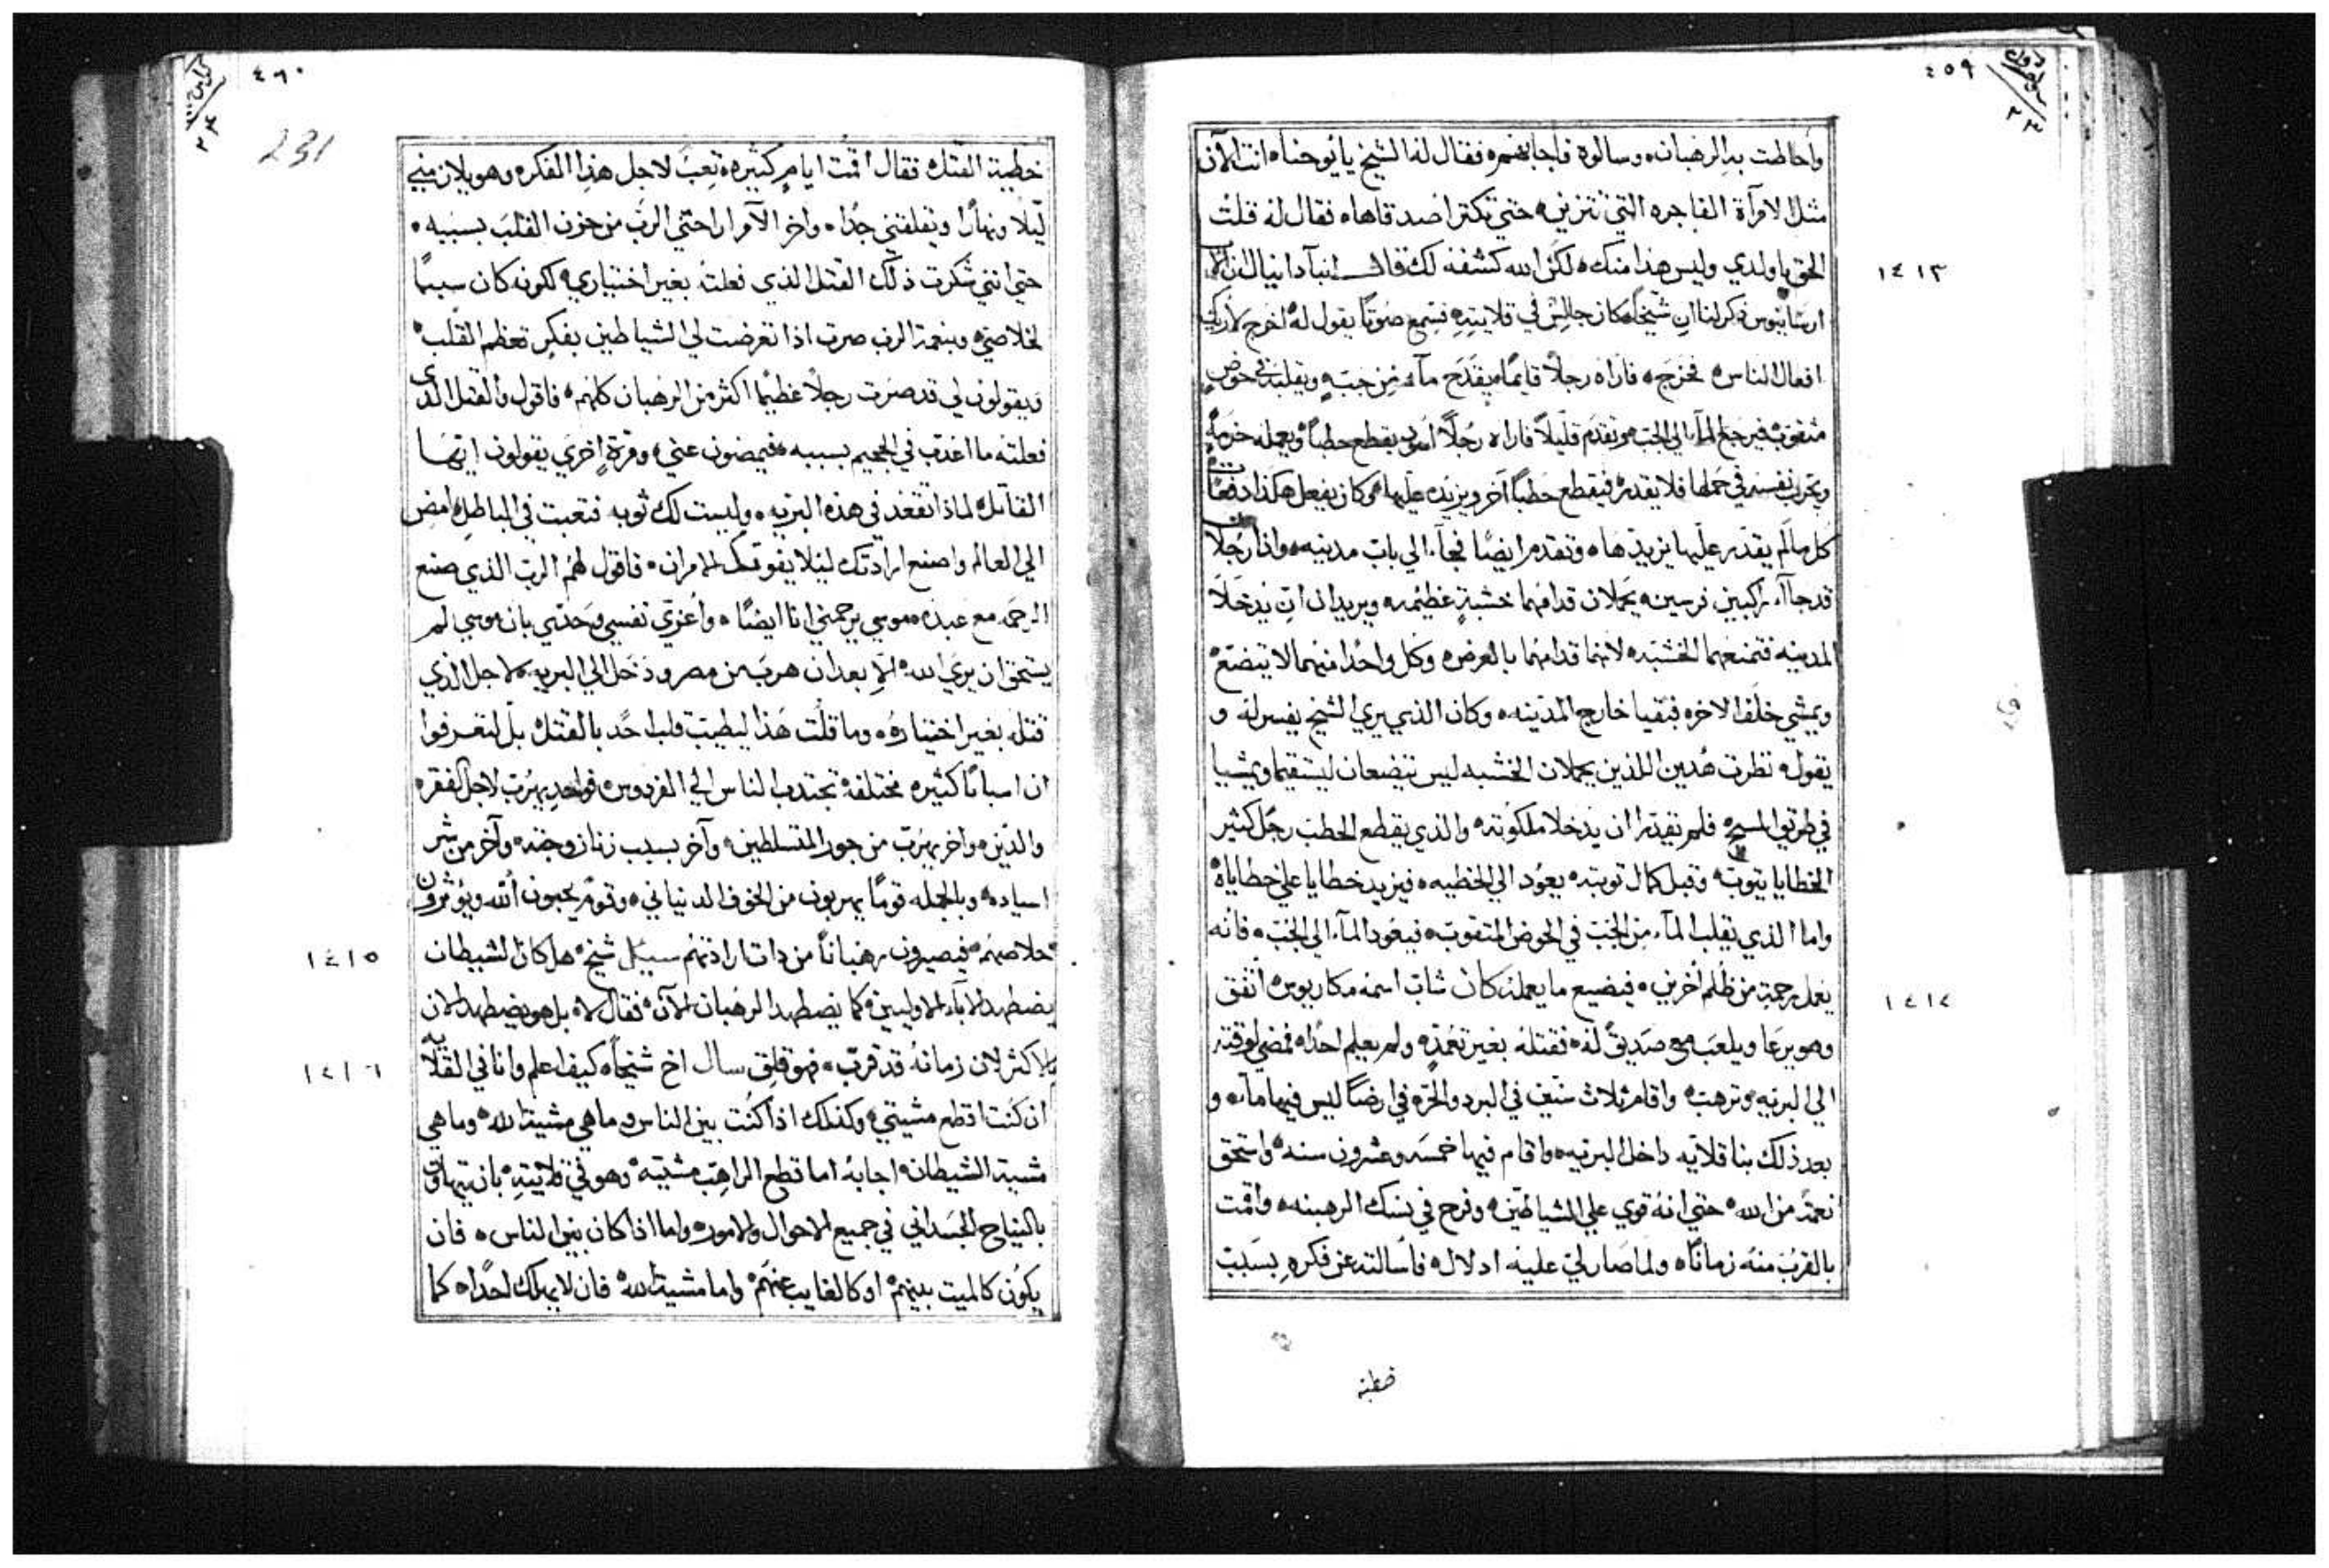 ٤٥٩
واحاطت به الرهبان ه وسالوه فاجابهم ه فقال له الشيخ يا يوحنا ه انت الآن
مثل الامرآة الفاجره التي تتزين ه حتي تكتر اصدقاها ه فقال له قلت
الحق يا ولدي وليس هذا منك ه لكن الله كشفه لك قال انبا دانيال ان انبا
١٤١٣
ارسانيوس ذكر لنا ان شيخًا كان جالس في قلايته ه فسمع صوتًا يقول له اخرج لاريك
افعال الناس ه فخرج ه فاراه رجلاً قايمًا ه يقدح مآء من جب ه ويقلبه في حوض
مثقوب ه فيرجع المآء الي الجب ه وتقدم قليلاً فاراه رجلاً اسود يقطع حطبًا ه ويعمله حزمه
ويجرب نفسه في حملها فلا يقدر ه فيقطع حطبًا آخر ويزيده عليها ه وكان يفعل هكذا دفعات
كل ما لم يقدر عليها يزيدها ه وتقدم ايضًا فجآء الي باب مدينه ه واذا رجلان
قد جاآء راكبين فرسين ه يحملان قدامهما خشبةٍ عظيمه ه ويريدان ان يدخلا
المدينه فتمنعهما الخشبه ه لانهما قدامهما بالعرض ه وكل واحدًا منهما لا يتضع
ويمشي خلف الاخر ه فبقيا خارج المدينه ه وكان الذي يري الشيخ يفسر له و
يقول ه نظرت هدين اللذين يحملان الخشبه ليس يتضعان ليستقيما ويمشيا
في طرق المسيح ه فلم يقدرا ان يدخلا ملكوته ه والذي يقطع الحطب رجل كثير
الخطايا يتوب ه وقبل كمال توبته ه يعود الي الخطيه ه فيزيد خطايا علي خطاياه
واما الذي يقلب المآء من الجب في الحوض المتقوب ه فيعود المآء الي الجب ه فانه
يعمل رحمة من ظلم اخرين ه فيضيع ما يعمله كان شاب اسمه مكاريوس ه اتفق
١٤١٤
وهو يرعا ويلعب مع صديق له ه فقتله بغير تعمد ه ولم يعلم احدًا ه فمضي لوقته
الي البريه ه وترهب ه واقام ثلاث سنين في البرد والحر ه في ارضًا ليس فيها مآء ه و
بعد ذلك بنا قلايه داخل البريه ه واقام فيها خمسه وعشرون سنه ه واستحق
نعمة من الله ه حتي انه قوي علي الشياطين ه وفرح في نسك الرهبنه ه واقمت
بالقرب منه زمانًا ه ولما صار لي عليه ادلال ه فاسالته عن فكره بسبب
٤٦٠
231
خطية القتل ه فقال اقمت ايام كثيره ه تعب لاجل هذا الفكر ه وهو يلازمني
ليلاً ونهارًا ويقلقني جدًا ه واخر الآمر اراحني الرب من حزن القلب بسببه ه
حتي انني شكرت ذلك القتل الذي فعلته بغير اختياري ه لكونه كان سببًا
لخلاصي ه وبنعمة الرب صرت اذا تعرضت لي الشياطين بفكر تعظم القلب ه
ويقولون لي قد صرت رجلاً عظيمًا اكثر من الرهبان كلهم ه فاقول والقتل الذي
فعلته ما اعذب في الجحيم بسببه ه فيمضون عني ه ومرة اخري يقولون ايها
القاتل ه لماذا تقعد في هذه البريه ه وليست لك توبه فتعبت في الباطل ه امض
الي العالم واصنع ارادتك ليلا يفوتك الامران ه فاقول لهم الرب الذي صنع
الرحمه مع عبده ه موسي يرحمني انا ايضًا ه واعزي نفسي وحدي بان موسي لم
يستحق ان يري الله ه الا بعد ان هرب من مصر ودخل الي البريه ه لاجل الذي
قتله بغير اختياره ه وما قلت هذا ليطيب قلب احد بالقتل ه بل لتعرفوا
ان اسبابًا كثيره مختلفة تجتدب الناس الي الفردوس ه فواحد يهرب لاجل الفقر ه
والدين ه واخر يهرب من جور المتسلطين ه وآخر بسبب زنا زوجته ه وآخر من شر
اسياده ه وبالجمله قومًا يهربون من الخوف الدنياني ه وقوم يحبون الله ويؤثرون
خلاصهم ه فيصيرون رهبانًا من دات ارادتهم سيل شيخ ه هل كان الشيطان
١٤١٥
يضطهد الآباء الاولين ه كما يضطهد الرهبان الآن ه فقال لا ه بل هو يضطهد الان
بالاكثر لان زمانه قد قرب ه فهو قلق سال اخ شيخًا ه كيف اعلم وانا في القلايه
١٤١٦
ان كنت اقطع مشيتي ه وكذلك اذا كنت بين الناس ه وما هي مشية الله ه وما هي
مشية الشيطان ه اجابه اما قطع الراهب مشيته ه وهو في قلايته ه بان يتهاون
بالنياح الجسداني في جميع الاحوال والامور ه واما اذا كان بين الناس ه فان
يكون كالميت بينهم ه او كالغايب عنهم ه واما مشية الله ه فان لا يهلك احدًا ه كما